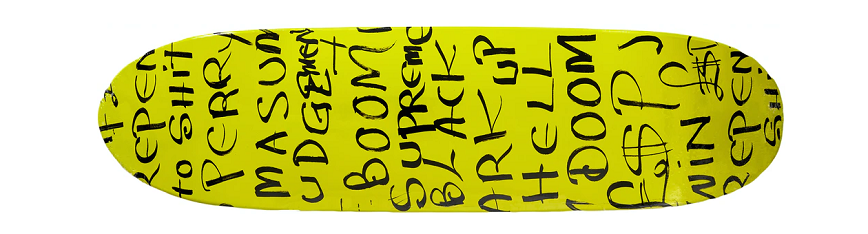 REPEN
to SHiT
PERRY
MASUM
UDGEMENT
BOOM
SUPREME
BLACK
ARK UP
HELL
DOOM
£$P
WIN
REPEN
SHI